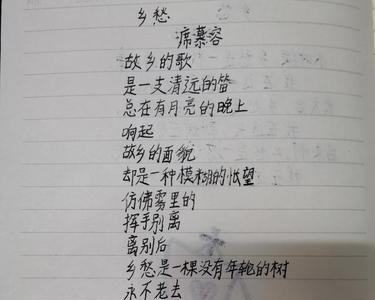 乡愁
席慕容
故乡的歌
是一支清远的笛
总在有月亮的晚上
响起
故乡的面貌
却是一种模糊的怅望
仿佛雾里的
挥手别离
离别后
乡愁是一棵没有年轮的树
永不老去